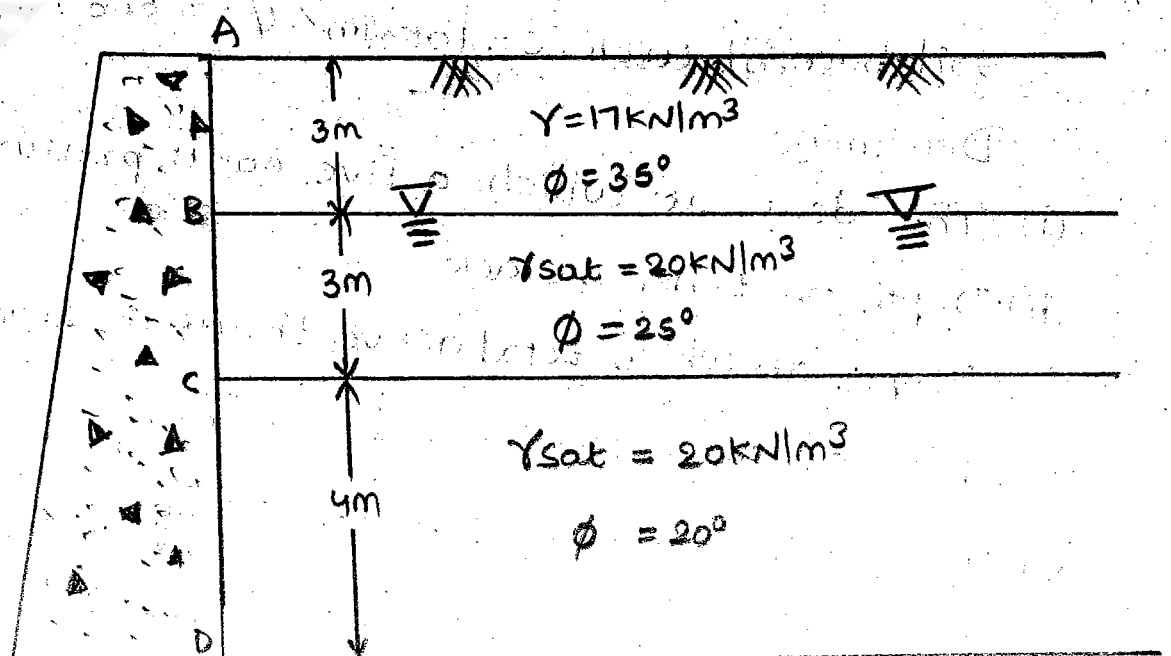 A
3m
γ=17KN/m³
ϕ = 35°
B
3m
γsat = 20KN/m³
ϕ = 25°
C
γsat = 20KN/m³
4m
ϕ = 20°
D